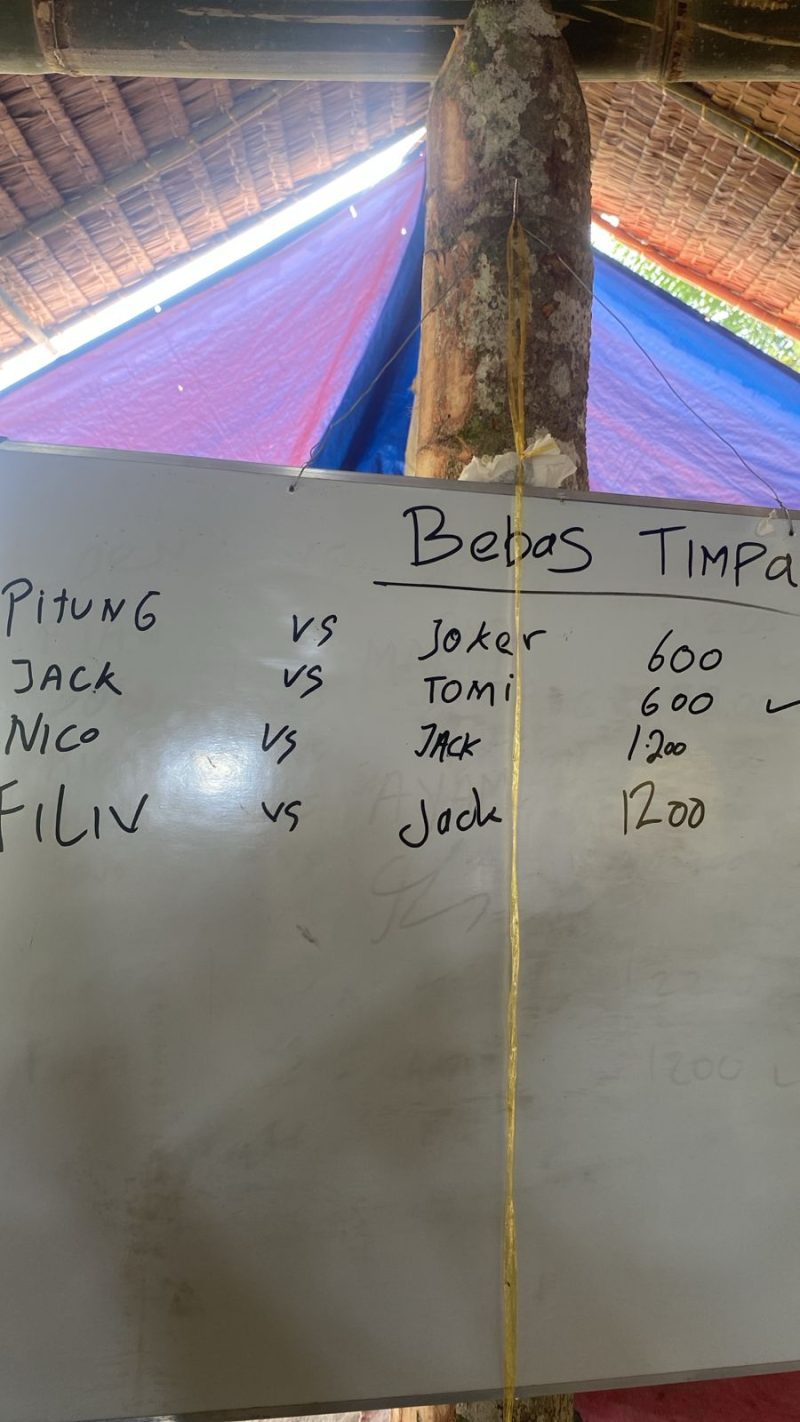 Bebas TIMPa
PitUNG vs Joker 600
JACK vs TOMi 600 ✓
NICO vs JACK 1.200
FILIV vs Jack 1200
1200